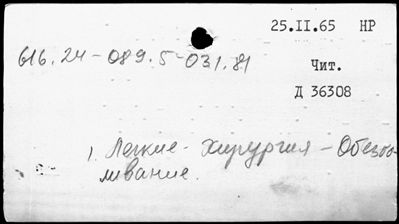 25.II.65 НР
616.24-089.5-031.81
Чит.
Д 36308
1. Легкие - Хирургия - Обезбо-
ливание.